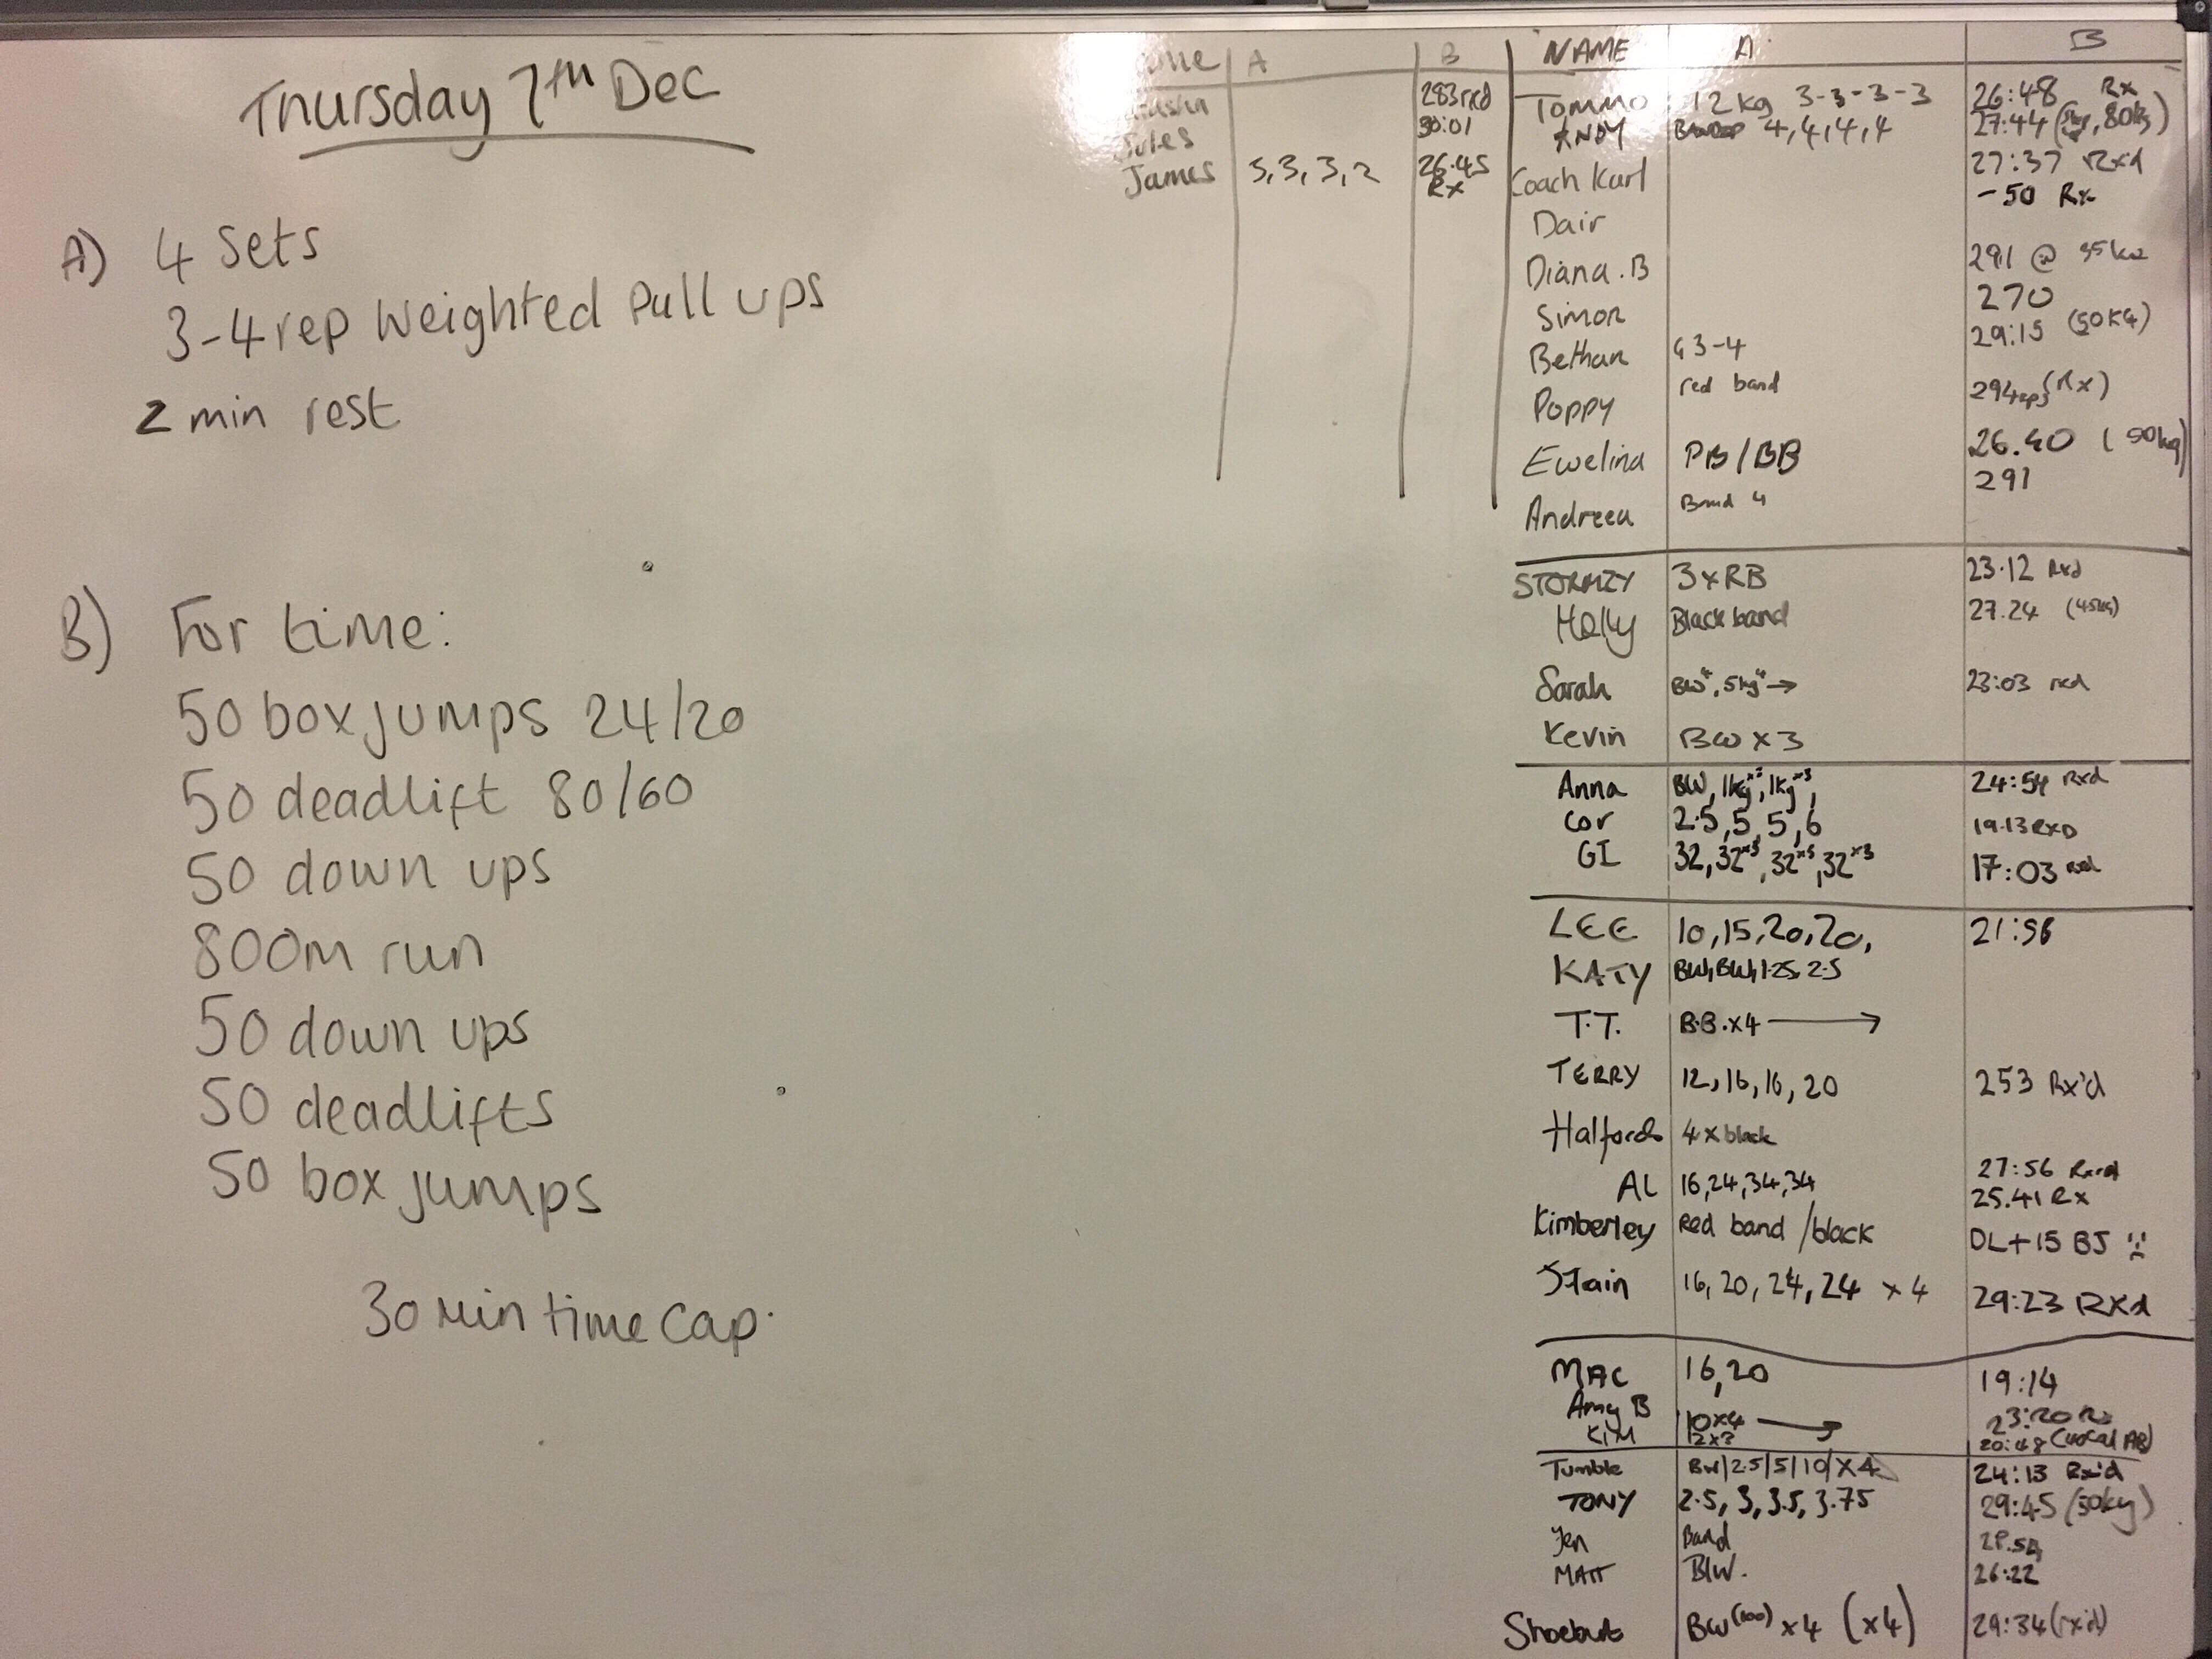 Thursday 7th Dec
A) 4 Sets
3-4 rep Weighted Pull ups
2 min rest
B) For time:
50 box jumps 24/20
50 deadlift 80/60
50 down ups
800m run
50 down ups
50 deadlifts
50 box jumps
30 Min time cap.
A B
283 rxd
Jules 30:01
James 5,3,3,2 26.45 Rx
NAME A B
Tommo 12kg 3-3-3-3 26:48 Rx
ANDY 4,4,4,4 27:44 80kg)
Coach Karl 27:37 Rxd
Dair -50 Rx
Diana.B 291 @ 55kg
Simon 270
Bethan 3-4 29:15 (50KG)
Poppy red band 294reps (Rx)
Ewelina PB/BB 26.40 (50kg)
Andreea Band 4 291
STORMZY 3xRB 23.12 Rxd
Holly Black band 27.24 (45kg)
Sarah BW, 5kg → 23:03 rxd
Kevin BW x 3
Anna BW, 1kg, 1kg x3, 24:54 Rxd
Cor 2.5, 5, 5, 6 19.13 RXD
GI 32, 32x3, 32x3, 32x3 17:03 rxd
LEE 10, 15, 20, 20, 21:56
KATY BW, BW, 1.25, 2.5
T.T. B.B. x4 →
TERRY 12, 16, 16, 20 253 Rx'd
Halfords 4 x black
AL 16, 24, 34, 34 27:56
25.41 Rx
Kimberley Red band / black DL + 15 BJ
Stain 16, 20, 24, 24 x 4 29:23 RXd
MAC 16, 20 19:14
Amy B 10x4 → 23:20 Rx
KIM 12x3 20:48
Tumble BW/2.5/5/10/ X4 24:13 Rx'd
TONY 2.5, 3, 3.5, 3.75 29:45 (50kg)
Jen Band
MATT B/W. 26:22
Shoebut BW (100) x4 (x4) 29:34 (rx'd)